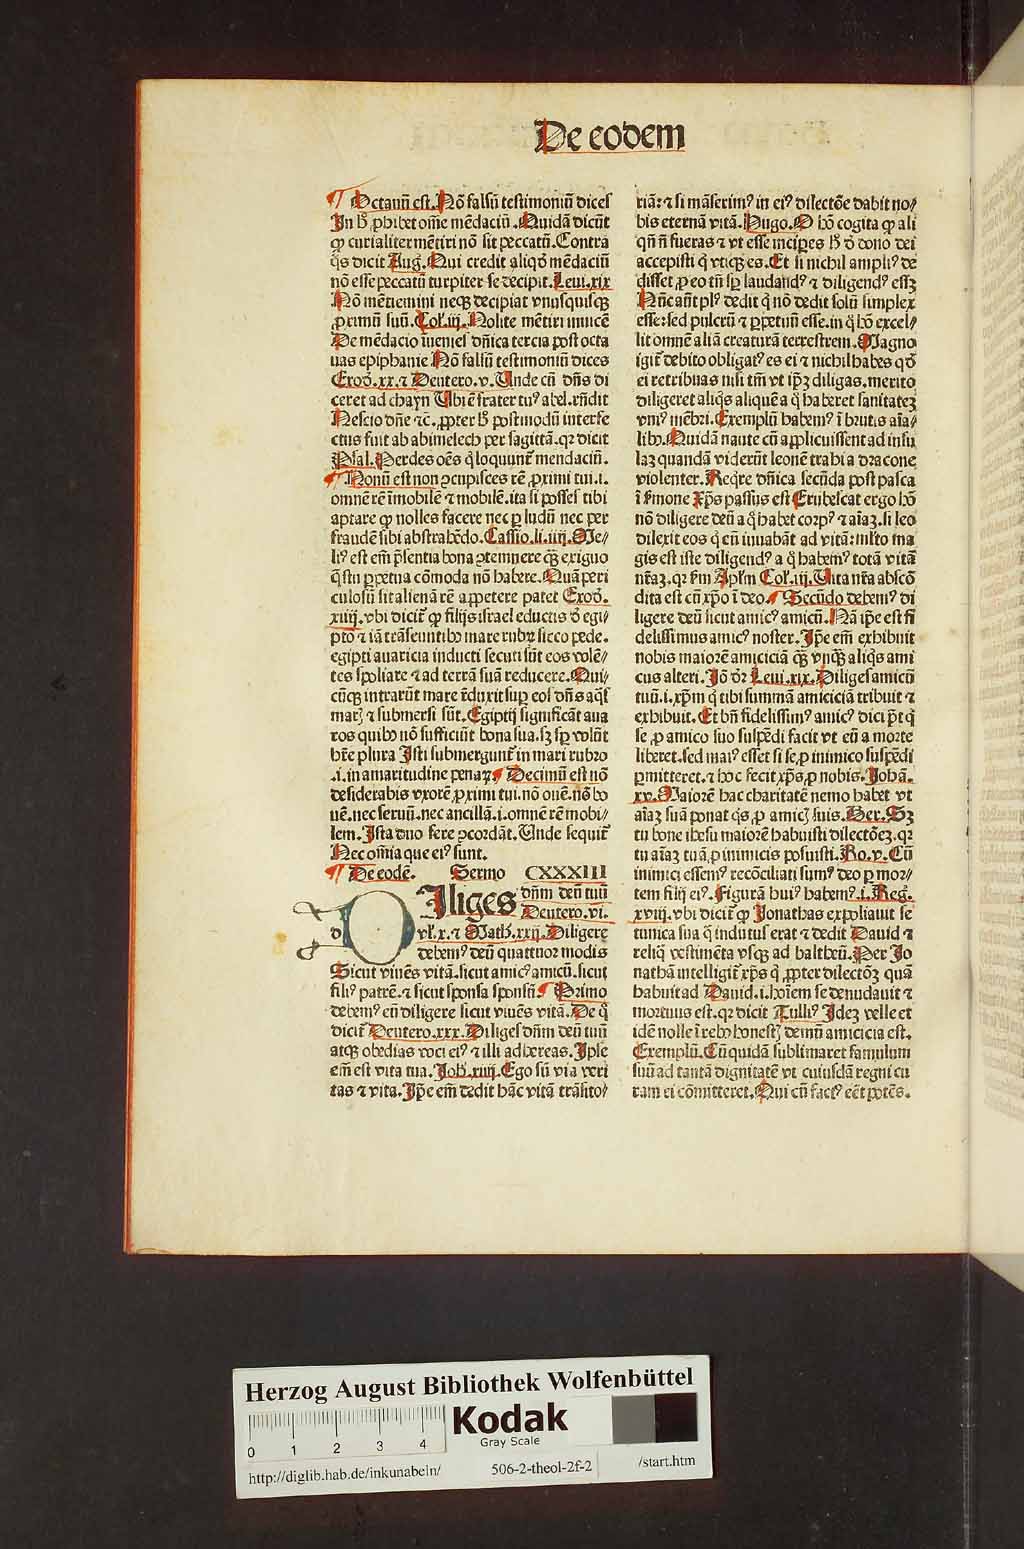 De eodem
Octauū est. Nō falsū testimoniū dices
In hͦ ꝓhibet om̄e mēdaciū. Quidā dicūt
ꝙ curialiter mētiri nō sit peccatū. Contra
q̄s dicit Aug. Qui credit aliqd̓ mēdaciū
nō esse peccatū turpiter se decipit. Leui. xix
Nō mētiemini neqꝫ decipiat vnusquisqꝫ
ꝓximū suū. Colͦ. iij. Nolite mētiri inuicē
De mēdacio īuenies dn̄ica tercia post octa
uas epiphanie Nō falsū testimoniū dices
Exod̓. xx. ⁊ Deutero. v. Unde cū dn̄s di
ceret ad chayn Ubi ē frater tuꝰ abel. rn̄dit
Nescio dn̄e ⁊c̄. ꝓpter hͦ postmodū interfe
ctus fuit ab abimelech per sagittā. qꝛ dicit
Psal. Perdes oēs q̇ loquunt᷑ mendaciū.
Nonū est non ꝯcupisces rē ꝓximi tui. i.
omnē rē īmobilē ⁊ mobilē. ita si posses tibi
aptare ꝙ nolles facere nec ꝑ ludū nec per
fraudē sibi abstrahēdo. Cassio. li. iiij. Me⸗
liꝰ est em̄ p̄sentia bona ꝯtemnere qꝫ̄ exiguo
q̄stu ꝑpetua cōmoda nō habere. Quā peri
culosū sit alienā rē appetere patet Exod̓.
xiiij. vbi dicit᷑ ꝙ filijs israel eductis d̓ egi⸗
pto ⁊ iā trāseuntibꝰ mare rubꝝ sicco pede.
egipti auaricia inducti secuti sūt eos volē⸗
tes spoliare ⁊ ad terrā suā reducere. Qui⸗
cūqꝫ intrarūt mare ⁊ īduxit suꝑ eos dn̄s aq̄s
marꝭ ⁊ submersi sūt. Egiptij significāt aua
ros quibꝰ nō sufficiūt bona sua. sꝫ sꝑ volūt
hr̄e plura Isti submergunt᷑ in mari rubro
.i. in amaritudine penaꝝ. Decimū est nō
desiderabis vxorē ꝓximi tui. nō ouē. nō bo
uē. nec seruū. nec ancillā. i. omnē rē mobi⸗
lem. Ista duo fere ꝯcordāt. Unde sequit᷑
Nec om̄ia que eiꝰ sunt.
De eodē. Sermo CXXXIII
DIliges dn̄m deū tuū
Deutero. vi.
d
vł. x. ⁊ Math. xxij. Diligere
debemꝰ deū quattuor modis
Sicut viuēs vitā. sicut amicꝰ amicū. sicut
filiꝰ patrē. ⁊ sicut sponsa sponsū Primo
debemꝰ eū diligere sicut viuēs vitā. De q̊
dicit᷑ Deutero. xxx. Diliges dn̄m deū tuū
atqꝫ obedias voci eiꝰ ⁊ illi adhereas. Ipse
em̄ est vita tua. Joh̓. xiiij. Ego sū via veri
tas ⁊ vita. Ip̄e em̄ dedit hāc vitā trāsito⸗
riā: ⁊ si māserimꝰ in eiꝰ dilectōe dabit no⸗
bis eternā vitā. Hugo. O hō cogita ꝙ ali
qn̄ n̄ fueras ⁊ vt esse inciperes hͦ d̓ dono dei
accepisti q̇ vtiqꝫ es. Et si nichil ampliꝰ de
disset ꝓ eo tn̄ sꝑ laudandꝰ ⁊ diligendꝰ essꝫ
Nūc aūt plꝰ dedit q̇ nō dedit solū simplex
esse: sed pulcrū ⁊ ꝑpetuū esse. in q̊ hō excel⸗
lit omnē aliā creaturā terrestrem. Magno
igit᷑ debito obligatꝰ es ei ⁊ nichil habes qd̓
ei retribuas nisi tm̄ vt ip̄ꝫ diligas. merito
diligeret aliq̇s aliquē a q̊ haberet sanitateꝫ
vniꝰ mēbri. Exemplū habemꝰ ī brutis aīa⸗
libꝰ. Quidā naute cū applicuissent ad insu
laꝫ quandā viderūt leonē trahi a dracone
violenter. Req̄re dn̄ica secūda post pasca
ī ẜmone Xp̄s passus est Erubescat ergo hō
nō diligere deū a q̊ habet corpꝰ ⁊ aīaꝫ. si leo
dilexit eos q̇ eū iuuabāt ad vitā: mlto ma
gis est iste diligendꝰ a q̊ habemꝰ totā vitā
nr̄aꝫ. qꝛ ẜm Apl̄m Colͦ. iij. Vita nr̄a abscō
dita est cū xp̄o ī deo. Secūdo debemꝰ di
ligere deū sicut amicꝰ amicū. Nā ip̄e est fi
delissimus amicꝰ noster. Ip̄e em̄ exhibuit
nobis maiorē amiciciā qꝫ̄ vnqꝫ̄ aliq̇s ami
cus alteri. Jō dr̄ Leui. xix. Diliges amicū
tuū. i. xp̄m q̇ tibi summā amiciciā tribuit ⁊
exhibuit. Et bn̄ fidelissimꝰ amicꝰ dici pt̄ q̇
se ꝓ amico suo suspēdi facit vt eū a morte
liberet. sed maiꝰ esset si se ꝓ inimico suspēdi
ꝑmitteret. ⁊ hoc fecit xp̄s ꝓ nobis. Johā.
xv. Maiorē hac charitatē nemo habet vt
aīaꝫ suā ponat q̇s ꝓ amicꝭ suis. Ber. Sꝫ
tu bone ihesu maiorē habuisti dilectōeꝫ. qꝛ
tu aīaꝫ tuā ꝓ inimicis posuisti. Ro. v. Cū
inimici essemꝰ recōciliati sumꝰ deo ꝑ mor⸗
tem filij eiꝰ. Figurā huiꝰ habemꝰ. i. Reg̓.
xviij. vbi dicit᷑ ꝙ Jonathas expoliauit se
tunica sua q̄ indutus erat ⁊ dedit Dauid ⁊
reliq̄ vestimēta vsqꝫ ad baltheū. Per Jo
nathā intelligit᷑ xp̄s q̇ ꝓpter dilectōeꝫ quā
habuit ad Dauid. i. hoīem se denudauit ⁊
mortuus est. qꝛ dicit Tulliꝰ Ideꝫ velle et
idē nolle ī rebꝰ honestꝭ demū amicicia est.
Exemplū. Cū quidā sublimaret famulum
suū ad tantā dignitatē vt cuiusdā regni cu
ram ei cōmitteret. Qui cū factꝰ eēt potēs.
Herzog August Bibliothek Wolfenbüttel
0 1 2 3 4
Kodak
Gray Scale
http://diglib.hab.de/inkunabeln/
506-2-theol-2f-2
/start.htm